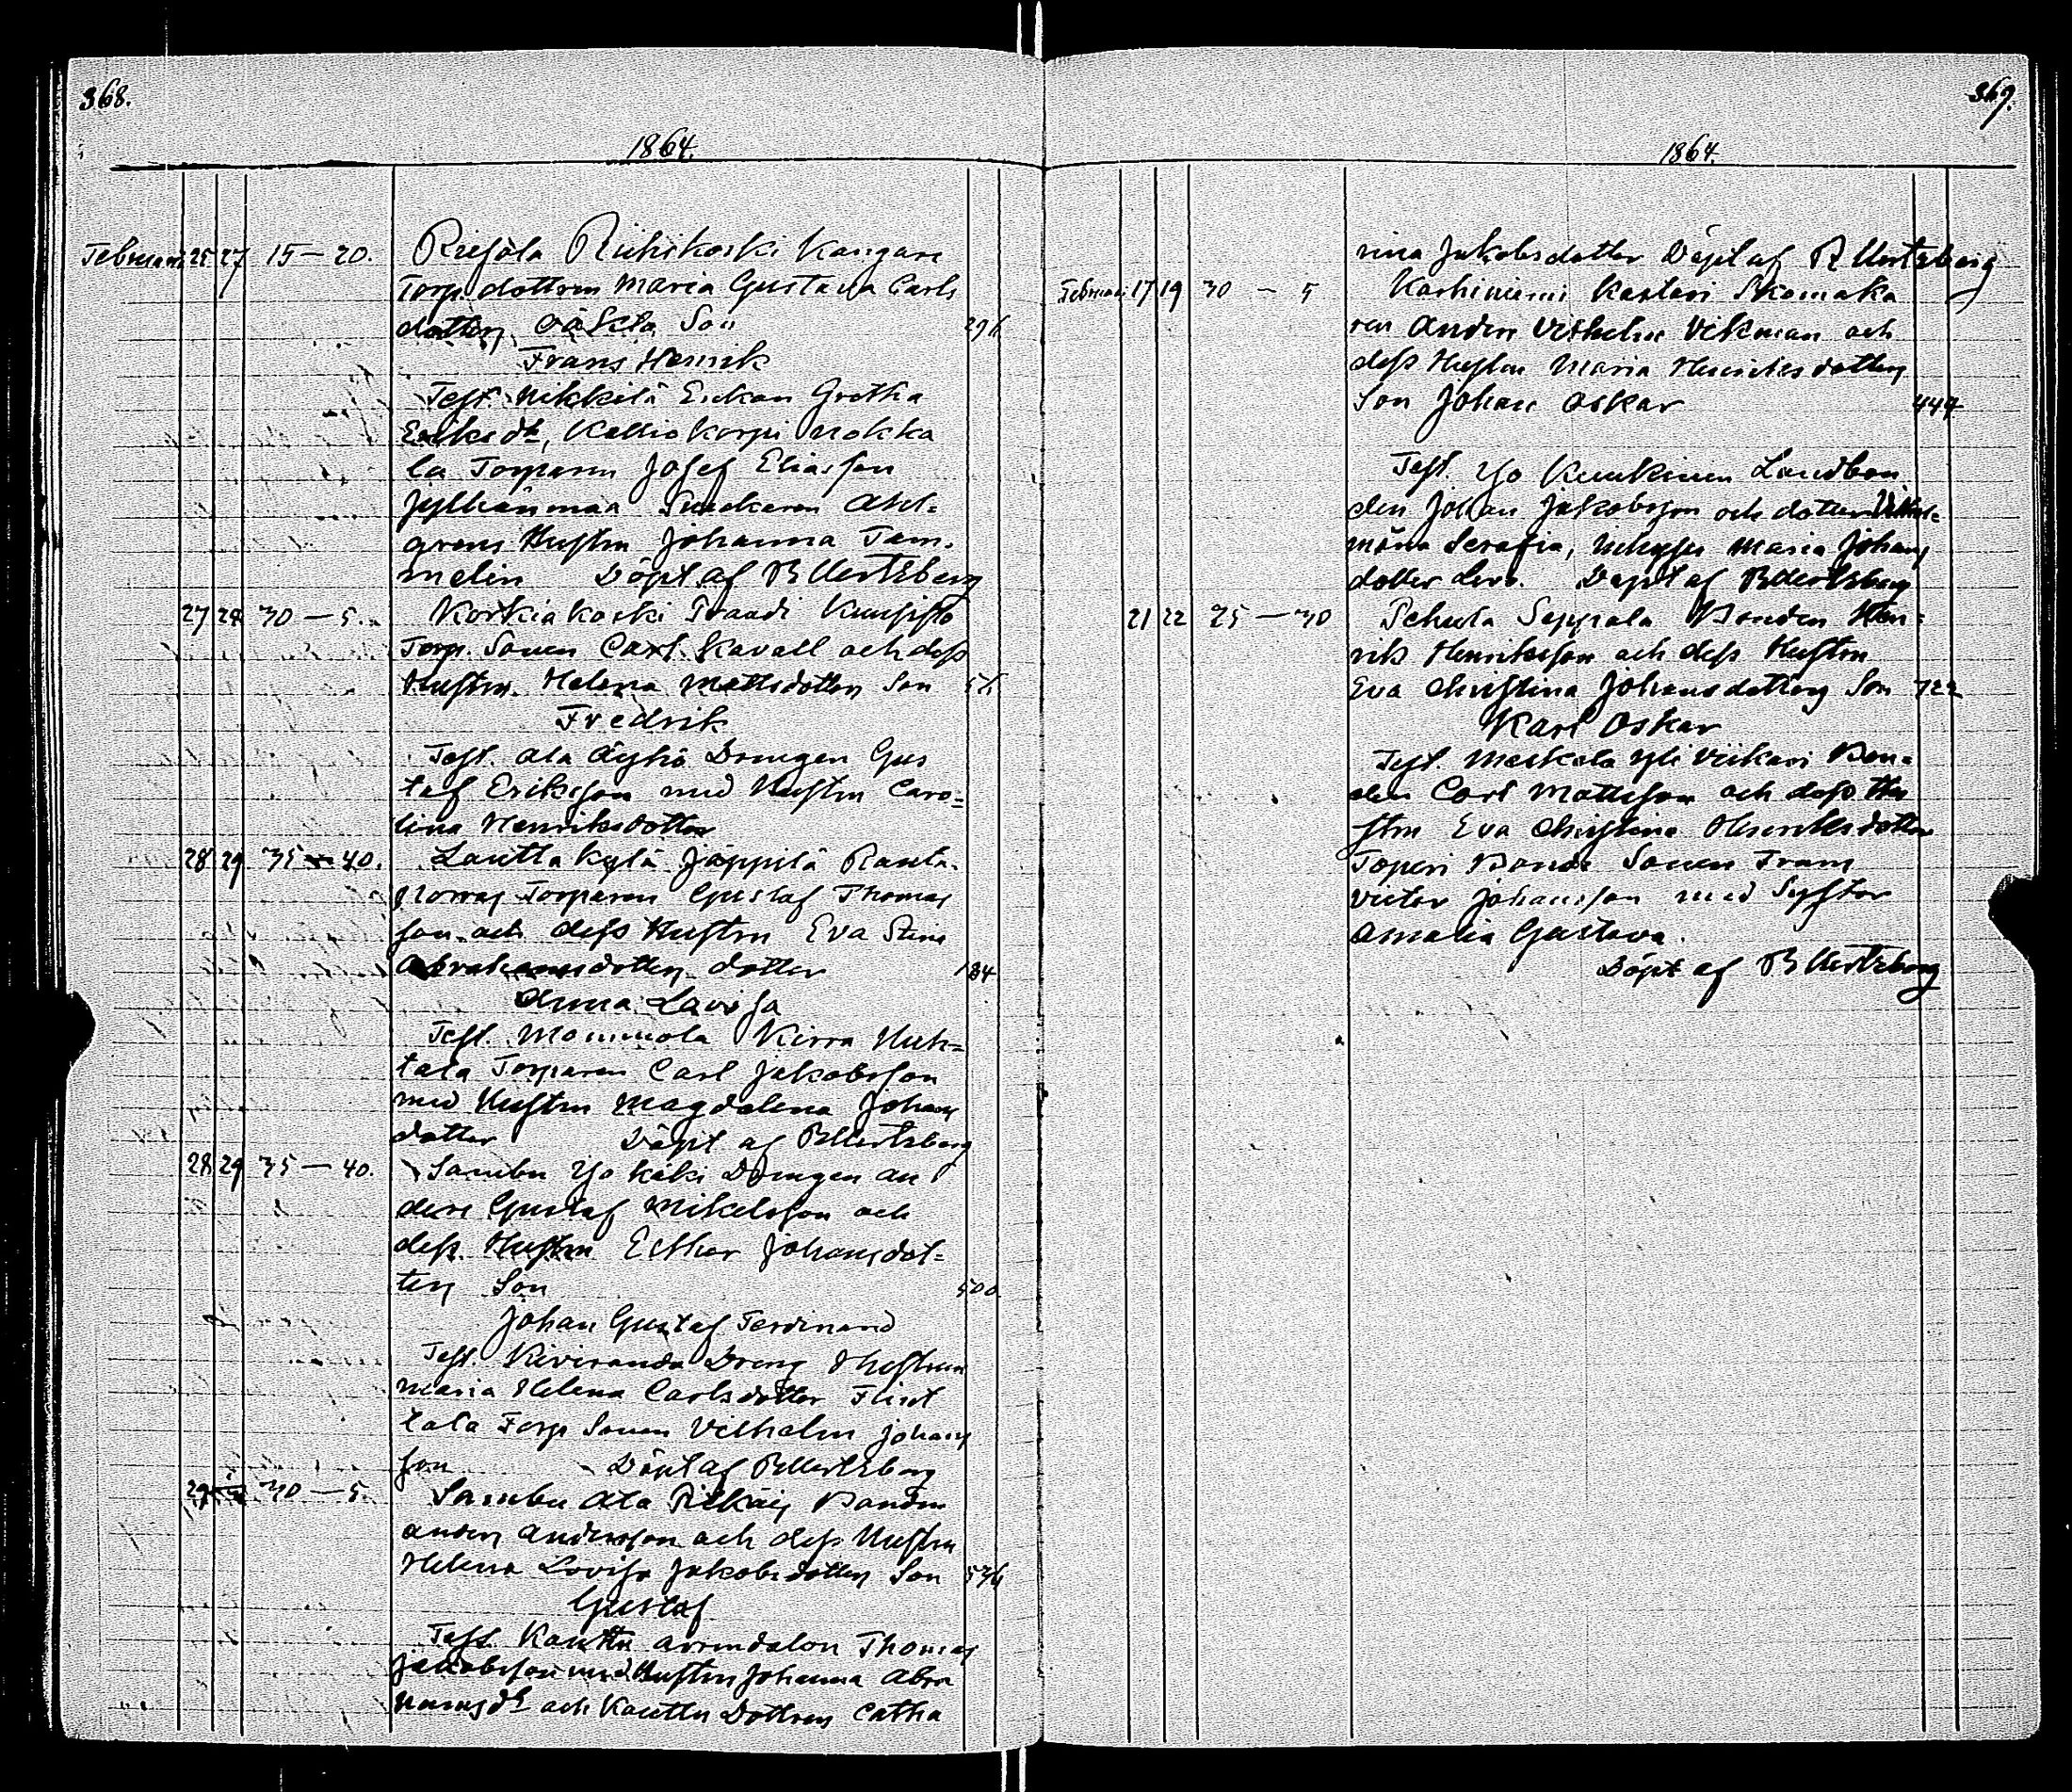 368.
1864.
Februari 25 27 15 – 20. Riesola Riihikoski Kangare
Torp. dottren Maria Gustava Carls
dotters oäkta Son 296
Frans Henrik
Test. Nikkilä Enkan Gretha
Eriks dr, Kalliokorpi Nokka
la Torparen Josef Eliasson
Jylhänmaa Snickaren Ahl=
grens Hustru Johanna Tam=
melin Döpt af B Hertzberg
27 28 30 – 5. Korkiakoski Traadi
Torp. Sonen Carl Kavall och dess
Hustrus Helena Mattsdotters Son
Fredrik
Test. Ala Äyhö Drengen Gus
taf Eriksson med Hustru Caro=
lina Henriksdotter
28 29 35 – 40. Lauttakylä Jäppilä Ranta
Norras Torparen Gustaf Thomas
son och dess Hustru Eva Stina
Abrahamsdotters dotter 184
Anna Lovisa
Test. Mommola Kirra Huh=
tala Torparen Carl Jakobsson
med Hustru Magdalena Johans
dotter Döpt af B Hertzberg
28 29 35 – 40. Sambu Yjo Käki Drengen An
ders Gustaf Mikelsson och
dess Hustru Esther Johansdot=
ters Son 500
Johan Gustaf Ferdinand
Test. Kiviranda Dreng Hustrun
Maria Helena Carlsdotter
tala Torp Sonen Vilhelm Johans
son Döpt af B Hertzberg
29 30 – 5. Sambu Ala Pitkäis Bonden
Anders Andersson och dess Hustru
Helena Lovisa Jakobsdotters Son 536
Gustaf
Test. Kauttu arrendatorn Thomas
Jakobsson med Hustru Johanna Abra
hams dr och Kauttu Dottren Catha
369.
1864.
rina Jakobsdotter Döpt af B Hertzberg
Februari 17 19 30 – 5 Karhiniemi Kastari Skomaka
ren Anders Vilhelm Vikman och
dess Hustru Maria Henriksdotters
Son Johan Oskar 444
Test. Yjo Kuukinen Landbon
den Johan Jakobsson och dotter Vilhel=
mina Serafia, Inhyses Maria Johans
dotter Döpt af B Hertzberg
21 22 25 – 30 Pehula Seppala Bonden Hen=
rik Henriksson och dess Hustru
Eva Christina Johansdotters Son 722
Karl Oskar
Test. Meskala Yli Viikari Bon=
den Carl Mattsson och dess Hu
stru Eva Christina Henriksdotter
Toperi Bonde Sonen Frans
Victor Johansson med Syster
Amalia Gustava.
Döpt af B Hertzberg